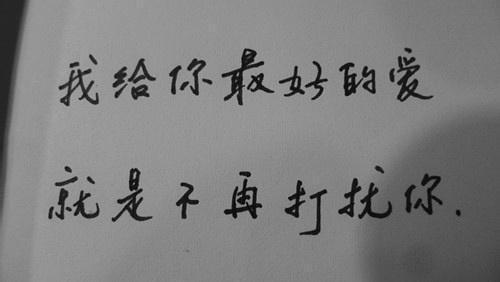 我给你最好的爱
就是不再打扰你.